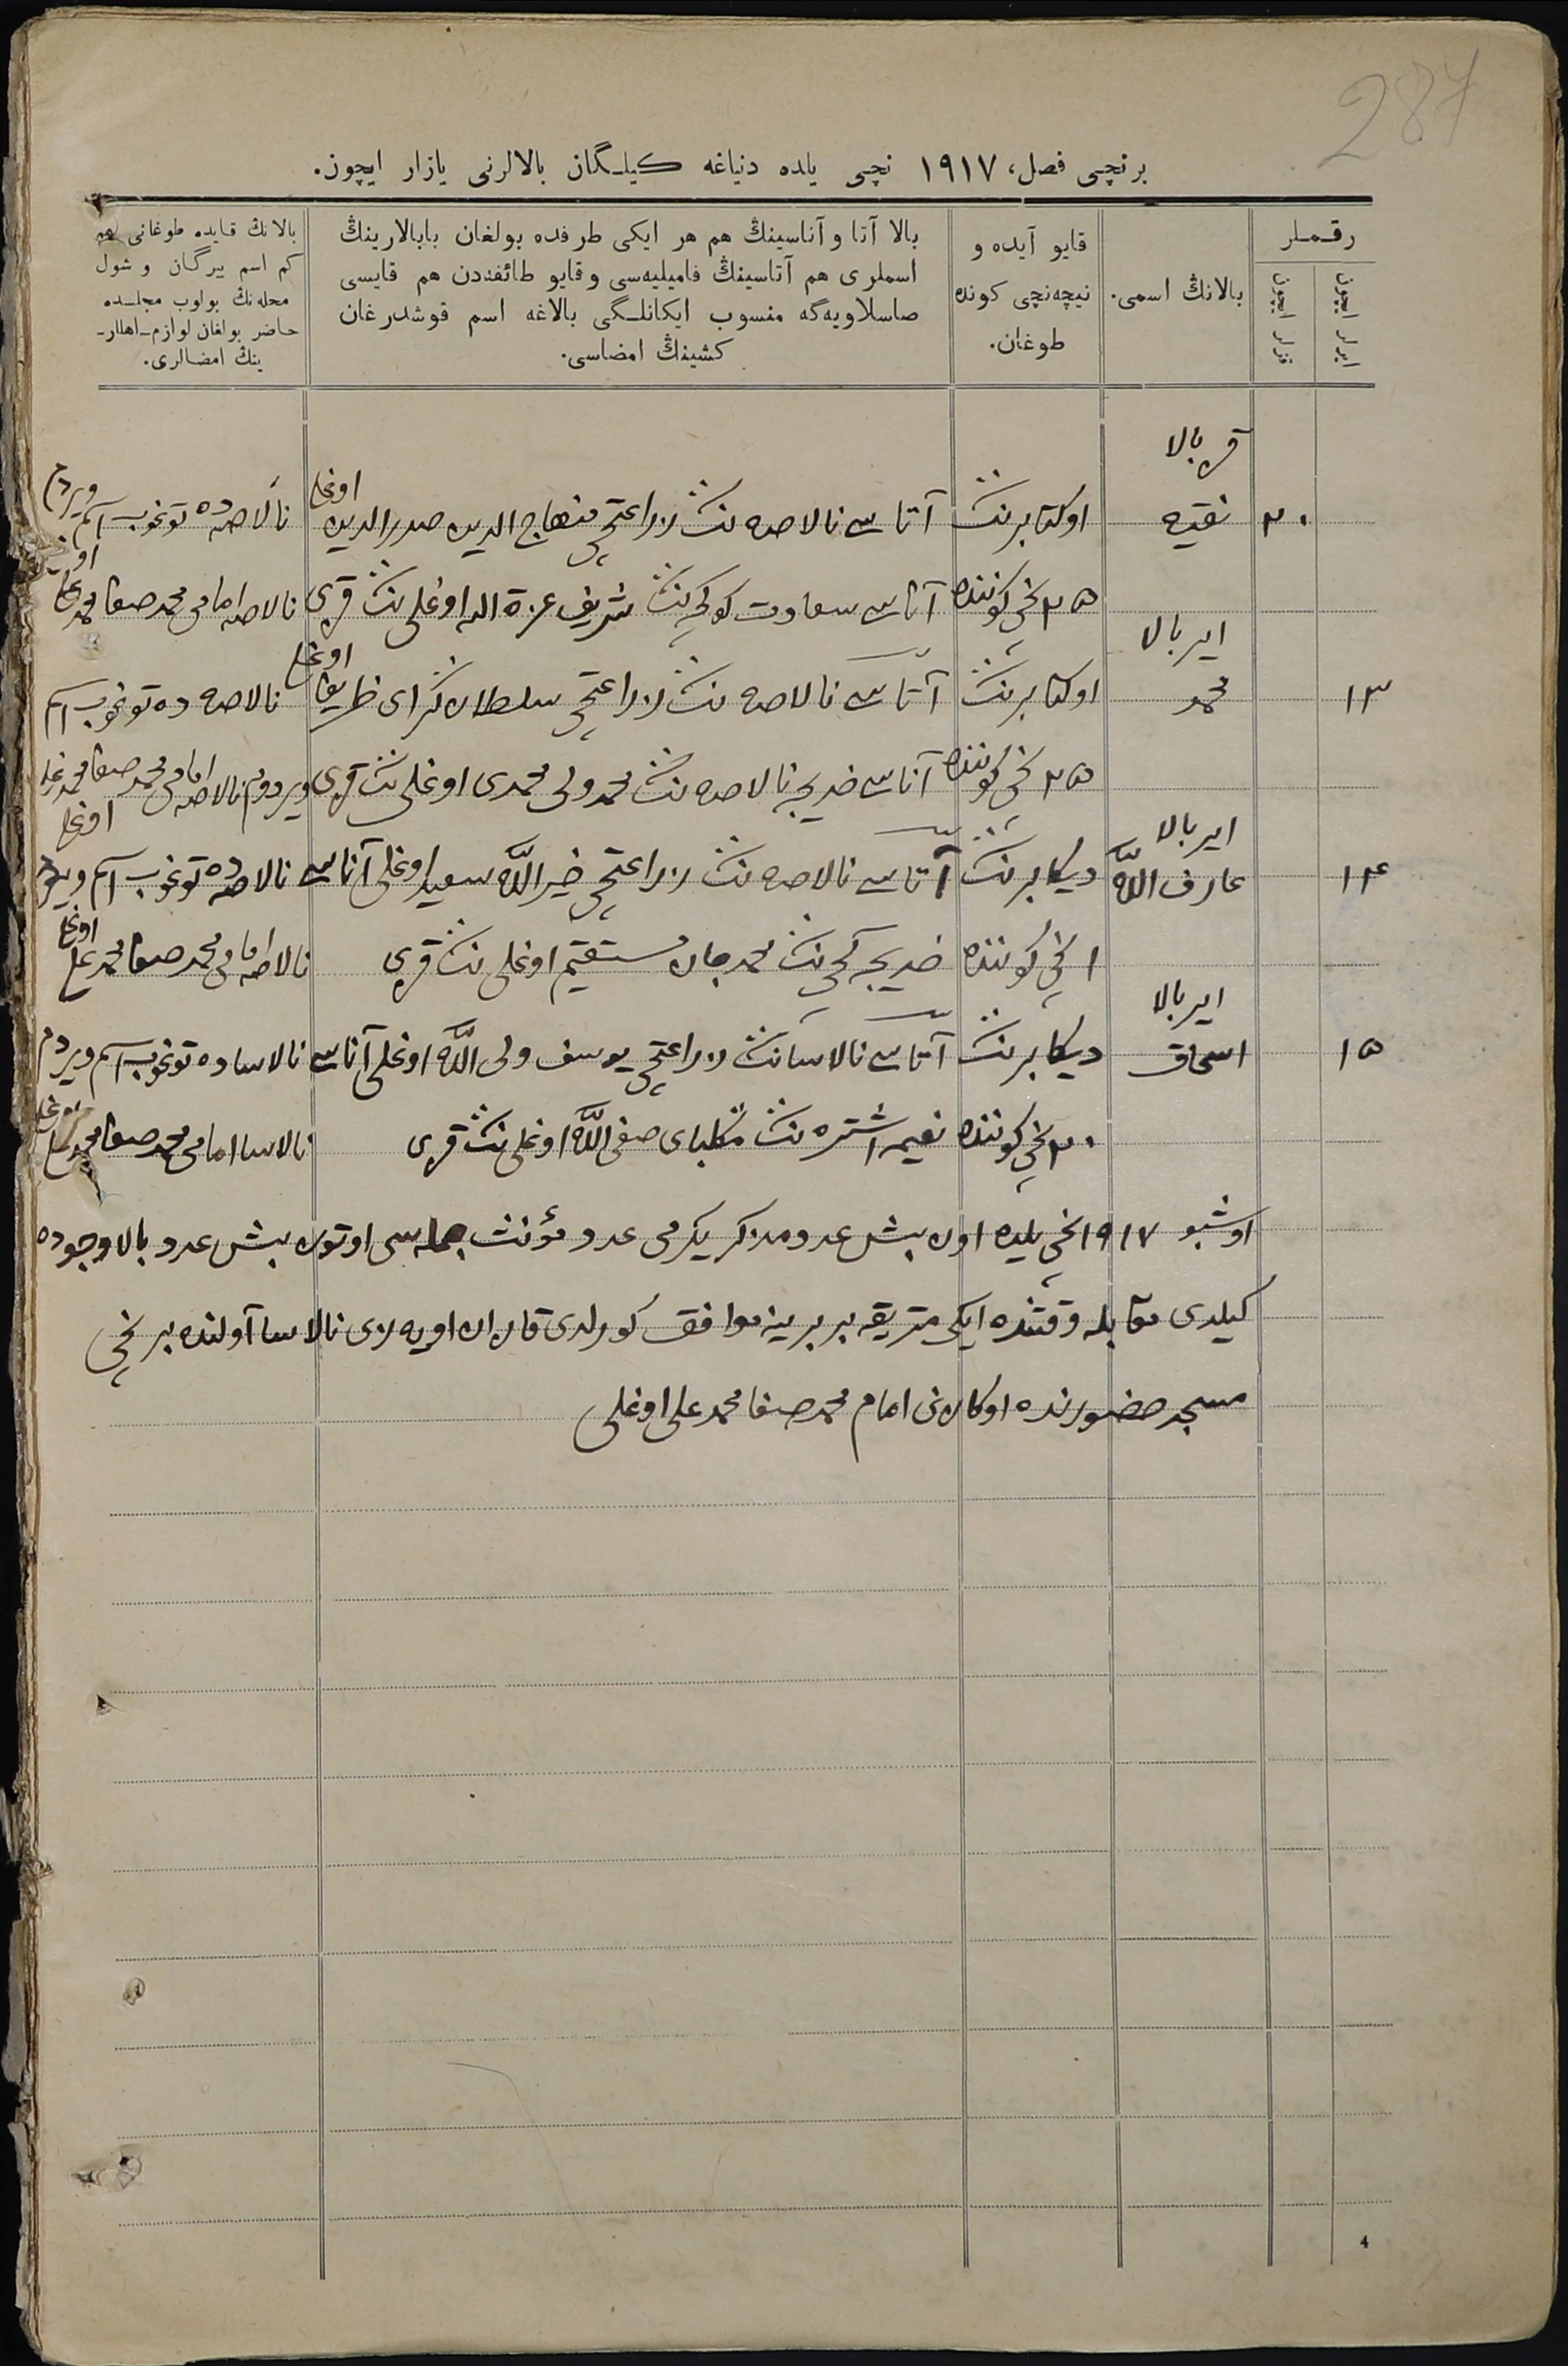 287
برنچی فصل، ١٩١٧ نچی یلده دنیاغه کیلـگان بالالرنی یازار ایچون.
رقـمـلر
ایرلر ایچون
قزلر ایچون
بالانڭ اسمی.
قایو آیده و
نیچه‌نچی کونده
طوغان.
بالا آتا و آناسینڭ هم هر ایکی طرفده بولغان بابالارینڭ
اسملری هم آتاسینڭ فامیلیه‌سی و قایو طائفه‌دن هم قایسی
صاسلاویه‌گه منسوب ایکانلـگی بالاغه اسم قوشدرغان
کشینڭ امضاسی.
بالانڭ قایده طوغانی هم
کم اسم بیرگان و شول
محله‌نڭ بولوب مجلـسده
حاضر بولغان لوازم-اهللر-
ینڭ امضالری.
قز بالا
٢٠ نقیه اوکتابرنڭ آتاسی نالاصه نڭ زراعتچی منهاج الدین صدرالدین اوغلی نالاصه‌ده توغوب اسم ویردم
٢٥ نچی کوننده آناسی سعادت کوکچه نڭ شریف عزة الله اوغلی نڭ قزی نالاصه امامی محمد صفا محمدعلی اوغلی
ایر بالا
١٣ محمد اوکتابرنڭ آتاسی نالاصه نڭ زراعتچی سلطان گرای ظریفا اوغلی نالاصه ده توغوب اسم
٢٥ نچی کوننده آناسی خدیجه نالاصه نڭ محمد ولی محمدی اوغلی نڭ قزی ویردوم نالاصه امامی محمد صفا محمدعلی اوغلی
ایر بالا
١٤ عارف الله دیکابرنڭ آتاسی نالاصه نڭ زراعتچی خیرالله سعید اوغلی آناسی نالاصه‌ده توغوب اسم ویردم
١ نچی کوننده خدیجه کچی نڭ محمدجان مستقیم اوغلی نڭ قزی نالاصه امامی محمد صفا محمدعلی اوغلی
ایر بالا
١٥ اسحاق دیکابرنڭ آتاسی نالاسانڭ زراعتچی یوسف ولی الله اوغلی آناسی نالاساده توغوب اسم ویردم
٢٠ نچی کوننده نعیمه اشتره نڭ منگلبای صفی الله اوغلی نڭ قزی نالاسا امامی محمد صفا محمدعلی اوغلی
اوشبو ١٩١٧ نچی یلده اون بیش عدد مذکر یکرمی عدد مؤنث جمله سی اوتوز بیش عدد بالا وجوده
کیلدی مقابله وقتنده ایکی متریقه بر برینه موافق کورلدی قازان اویه زی نالاسا آولنده برنچی
مسجد حضورنده اوکازنی امام محمد صفا محمد علی اوغلی
4